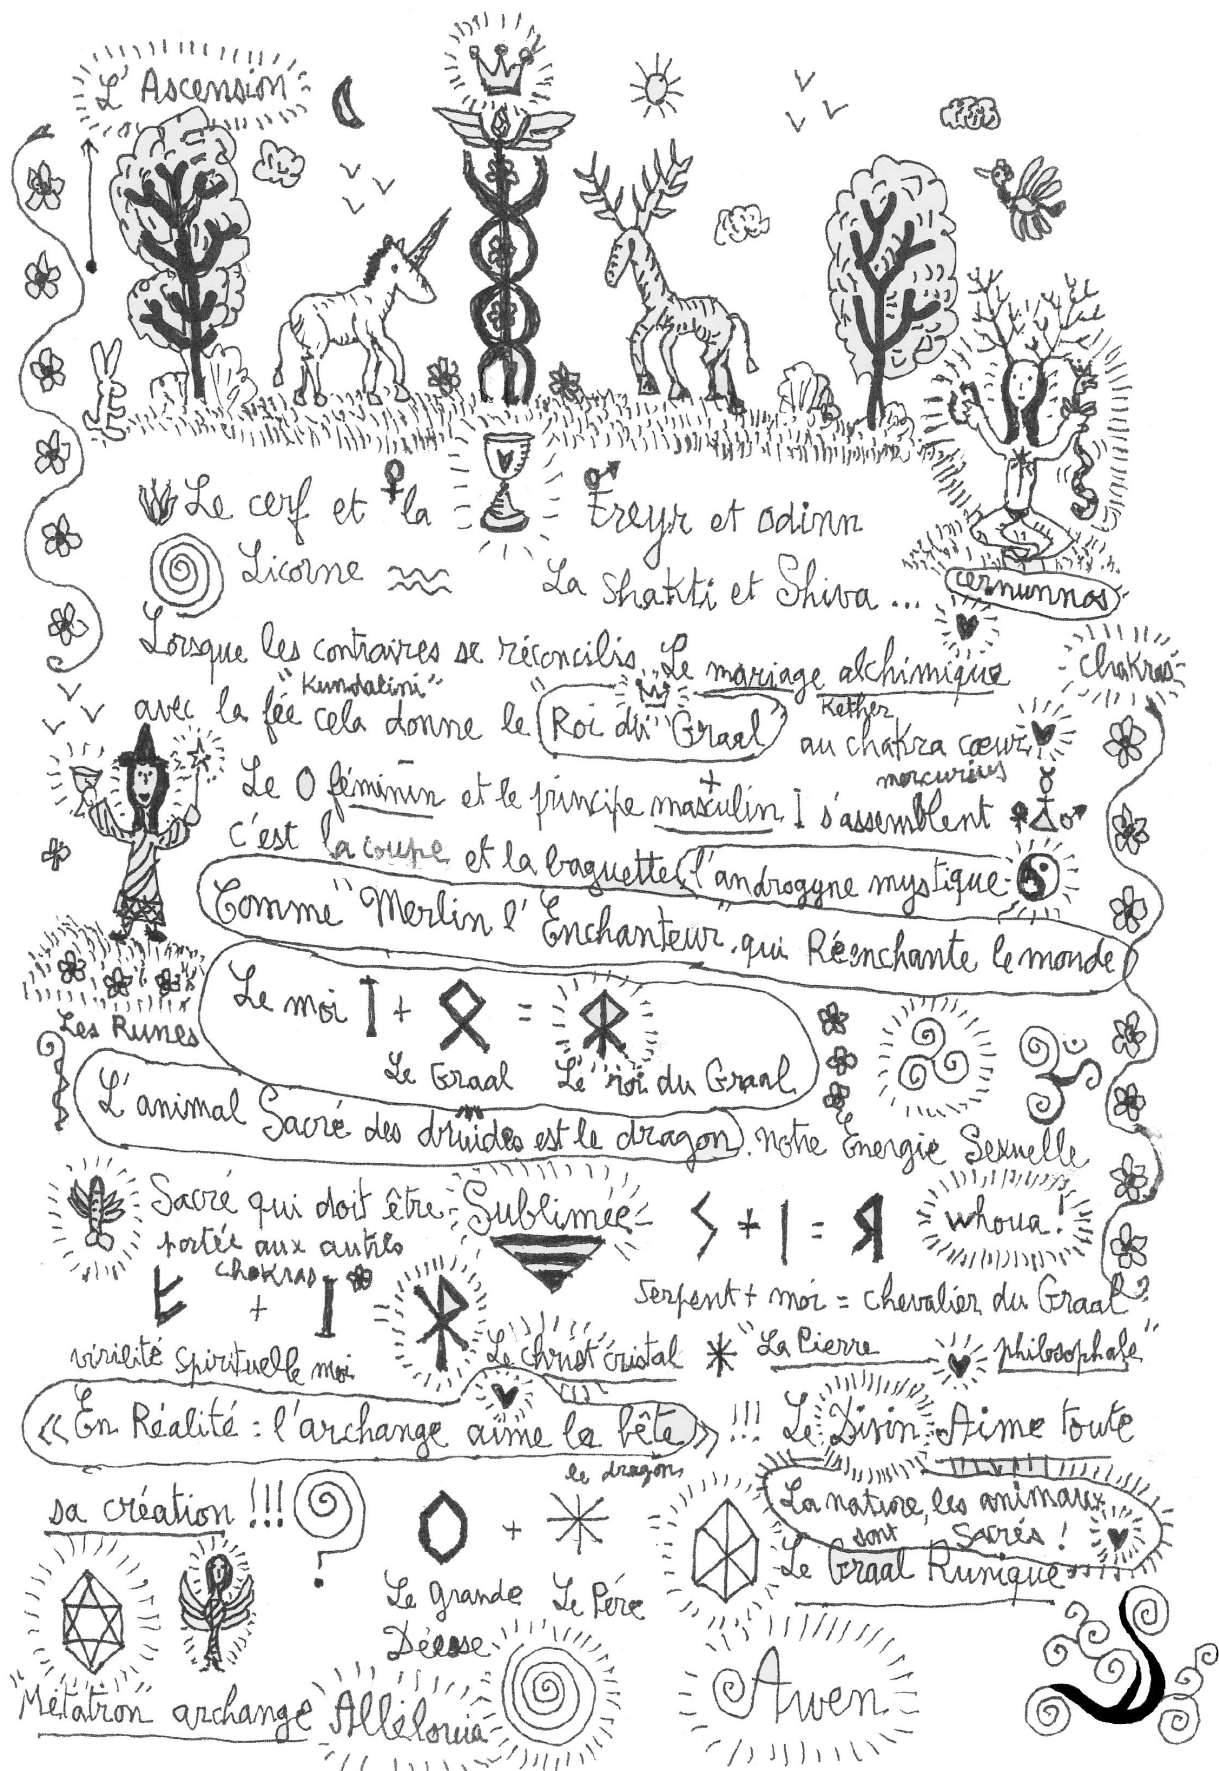 L'Ascension
Le cerf et la Freyr et odinn
Licorne La Shakti et Shiva ...
cernunnos
Lorsque les contraires se réconcilis. Le mariage alchimique
chakras
"Kundalini"
avec la fée cela donne le "Roi du Graal" au chakra cœur
Kether
mercurius
Le O féminin et le principe masculin I s'assemblent
- +
c'est la coupe et la baguette, l'androgyne mystique
Comme "Merlin l'Enchanteur" qui Réenchante le monde
Le moi I + = 
Les Runes
Le Graal Le "roi du Graal
L'animal Sacré des druides est le dragon. notre Énergie Sexuelle
Sacré qui doit être Sublimée + = whoua!
portée aux autres
chakras
Serpent + moi = chevalier du Graal
+ =
virilité spirituelle moi Le christ cristal "La Pierre philosophale"
« En Réalité : l'archange aime la bête » !!! Le Divin Aime toute
le dragon
sa création !!!
+
La nature, les animaux
sont Sacrés !
Le Graal Runique
Le Grande Le Père
Déesse
"Métatron" archange Allélouia Awen